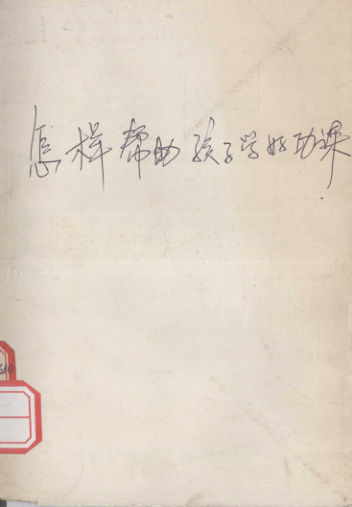 怎样帮助孩子学好功课